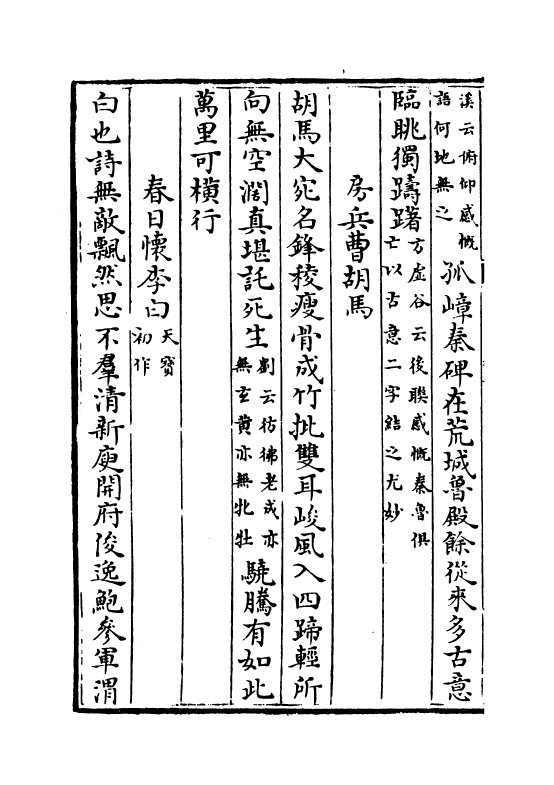 溪云俯仰感慨語何地無之孤嶂秦碑在荒城魯殿餘從來多古意
臨眺獨躊躇方虛谷云後聯感慨秦魯俱亡以古意二字結之尤妙
房兵曹胡馬
胡馬大宛名鋒稜瘦骨成竹批雙耳峻風入四蹄輕所
向無空濶真堪託死生劉云彷彿老成亦無玄黃亦無牝牡驍騰有如此
萬里可橫行
春日懷李白天寶初作
白也詩無敵飄然思不羣清新庾開府俊逸鮑參軍渭